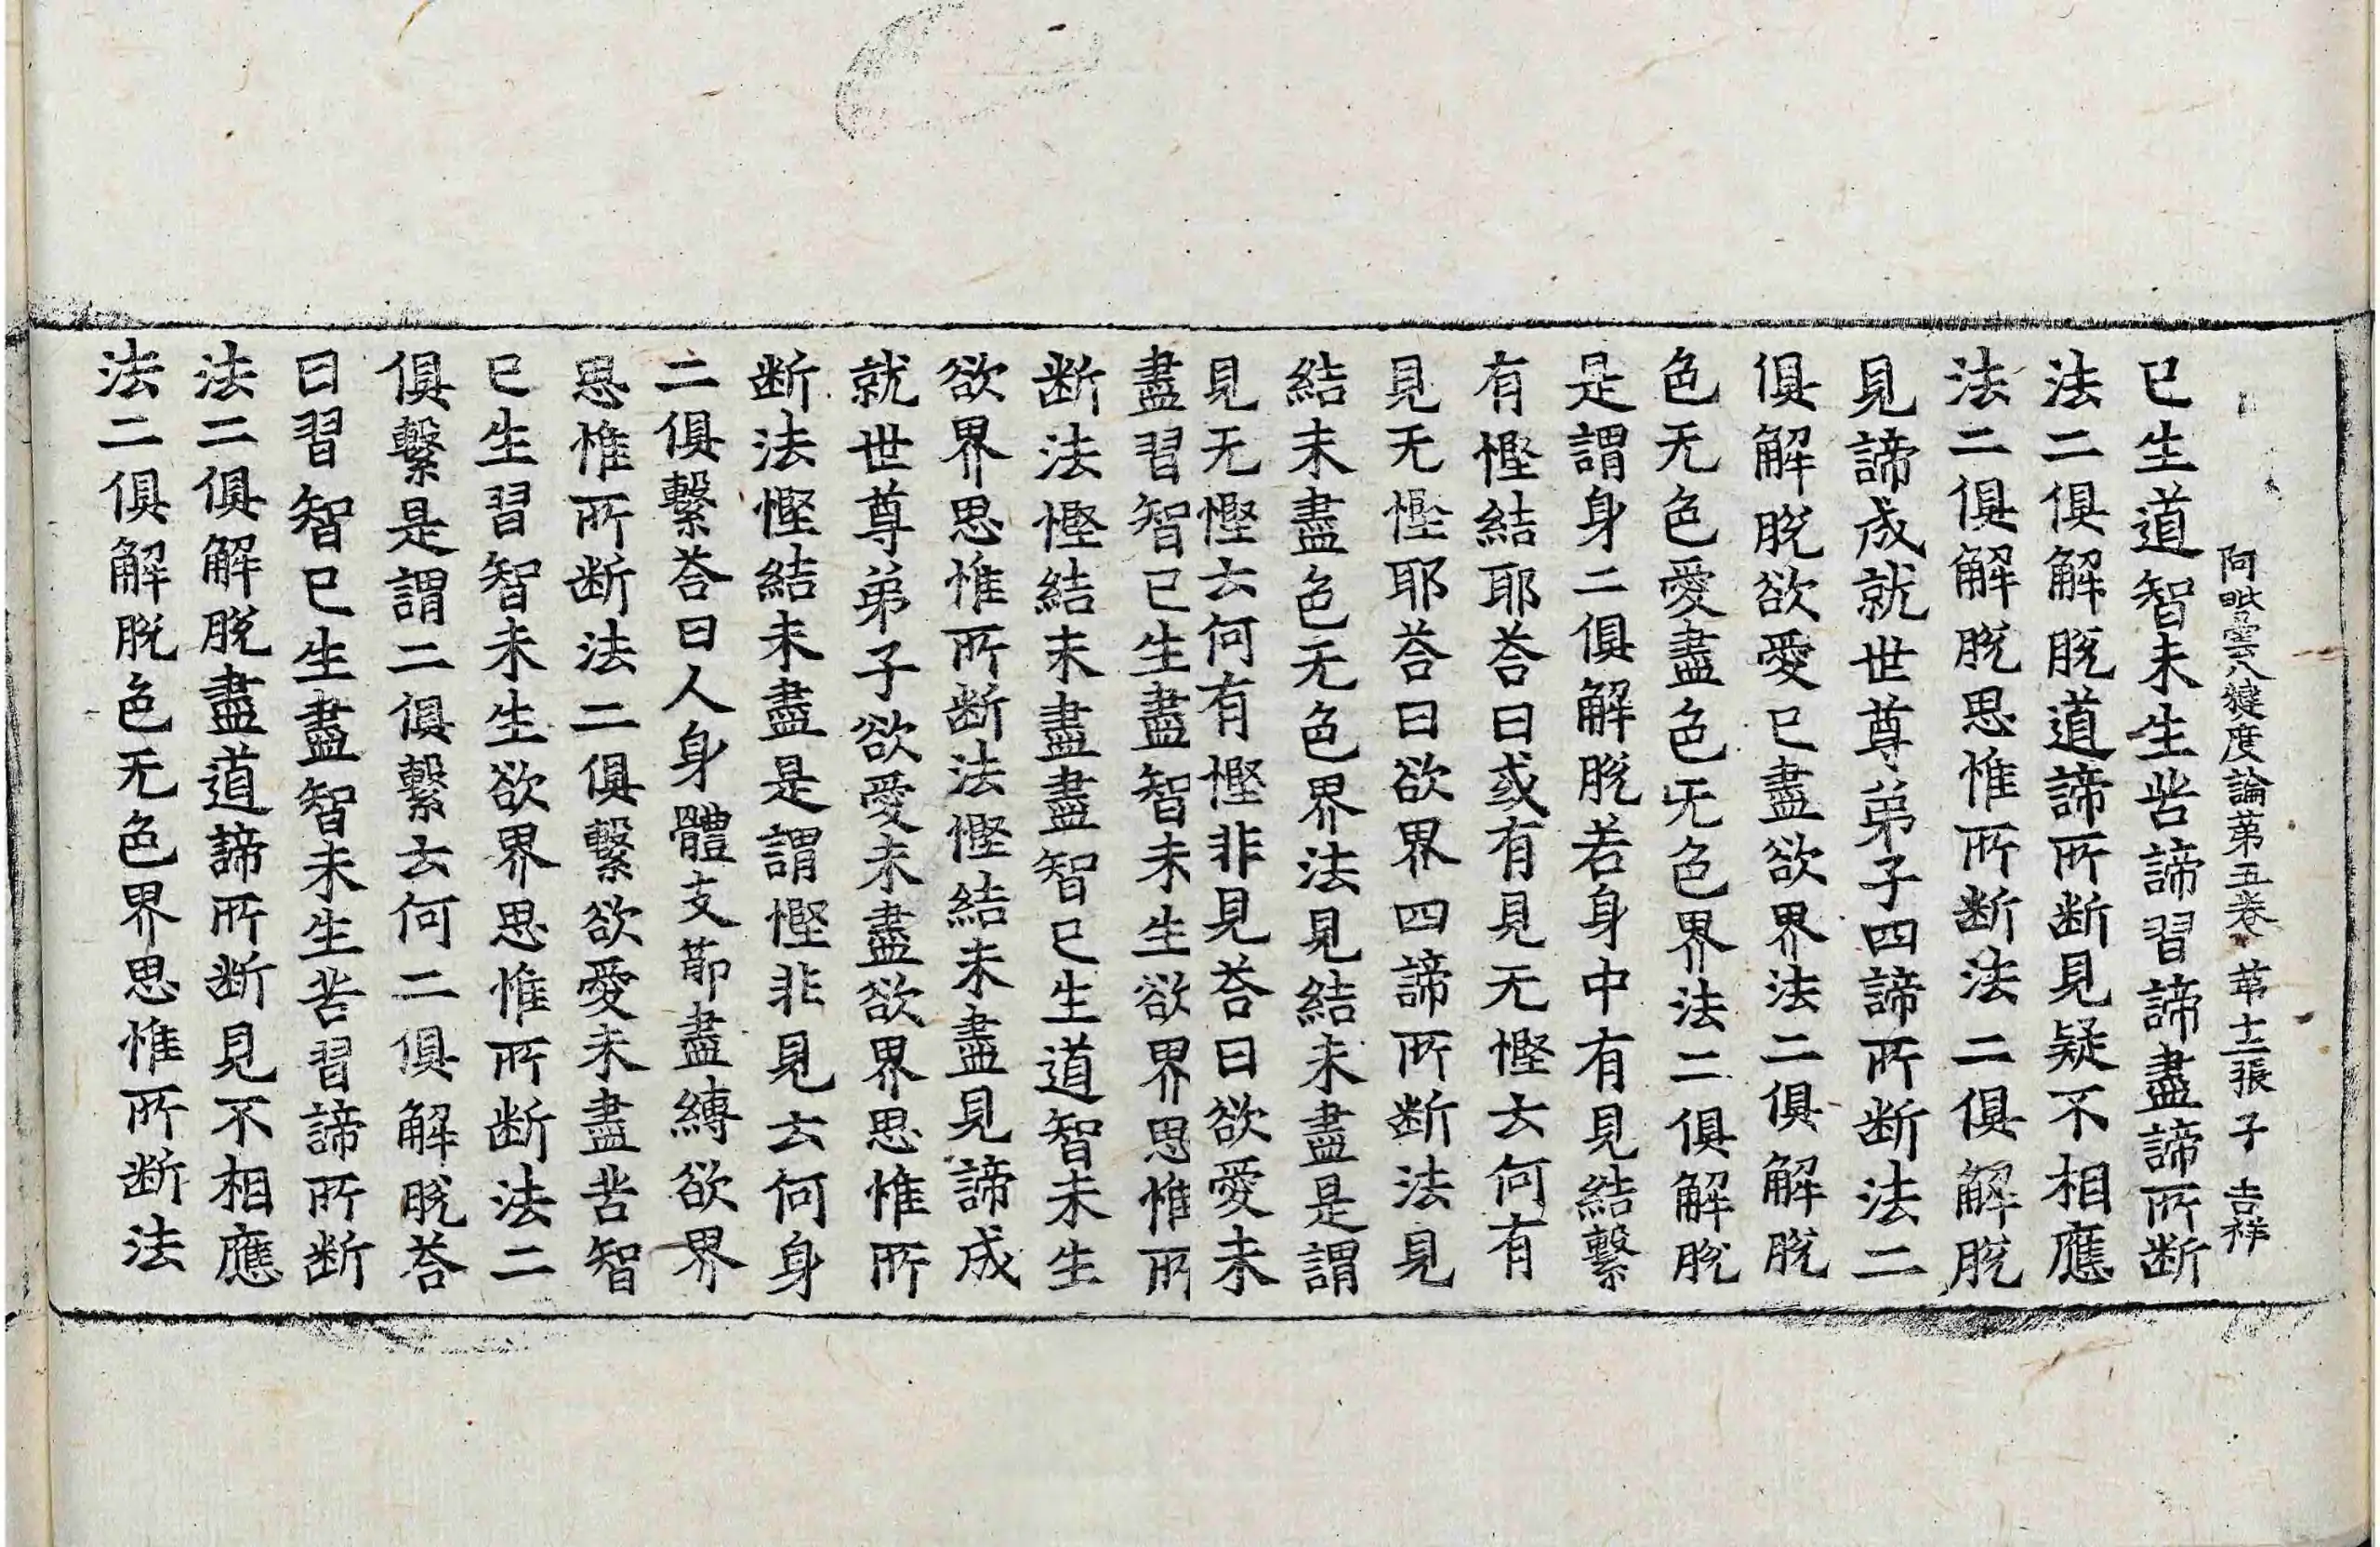 阿毗曇八犍度論第五卷 第十二張 子 吉祥
已生道智未生苦諦習諦盡諦所断
法二俱解脫道諦所断見疑不相應
法二俱解脫思惟所断法二俱解脫
見諦成就世尊弟子四諦所断法二
俱解脫欲愛已盡欲界法二俱解脫
色无色愛盡色无色界法二俱解脫
是謂身二俱解脫若身中有見結繫
有慳結耶荅曰或有見无慳云何有
見无慳耶荅曰欲界四諦所断法見
結未盡色无色界法見結未盡是謂
見无慳云何有慳非見荅曰欲愛未
盡習智已生盡智未生欲界思惟所
断法慳結未盡盡智已生道智未生
欲界思惟所断法慳結未盡見諦成
就世尊弟子欲愛未盡欲界思惟所
断法慳結未盡是謂慳非見云何身
二俱繫荅曰人身體支莭盡縛欲界
思惟所断法二俱繫欲愛未盡苦智
已生習智未生欲界思惟所断法二
俱繫是謂二俱繫云何二俱解脫荅
曰習智已生盡智未生苦習諦所断
法二俱解脫盡道諦所断見不相應
法二俱解脫色无色界思惟所断法